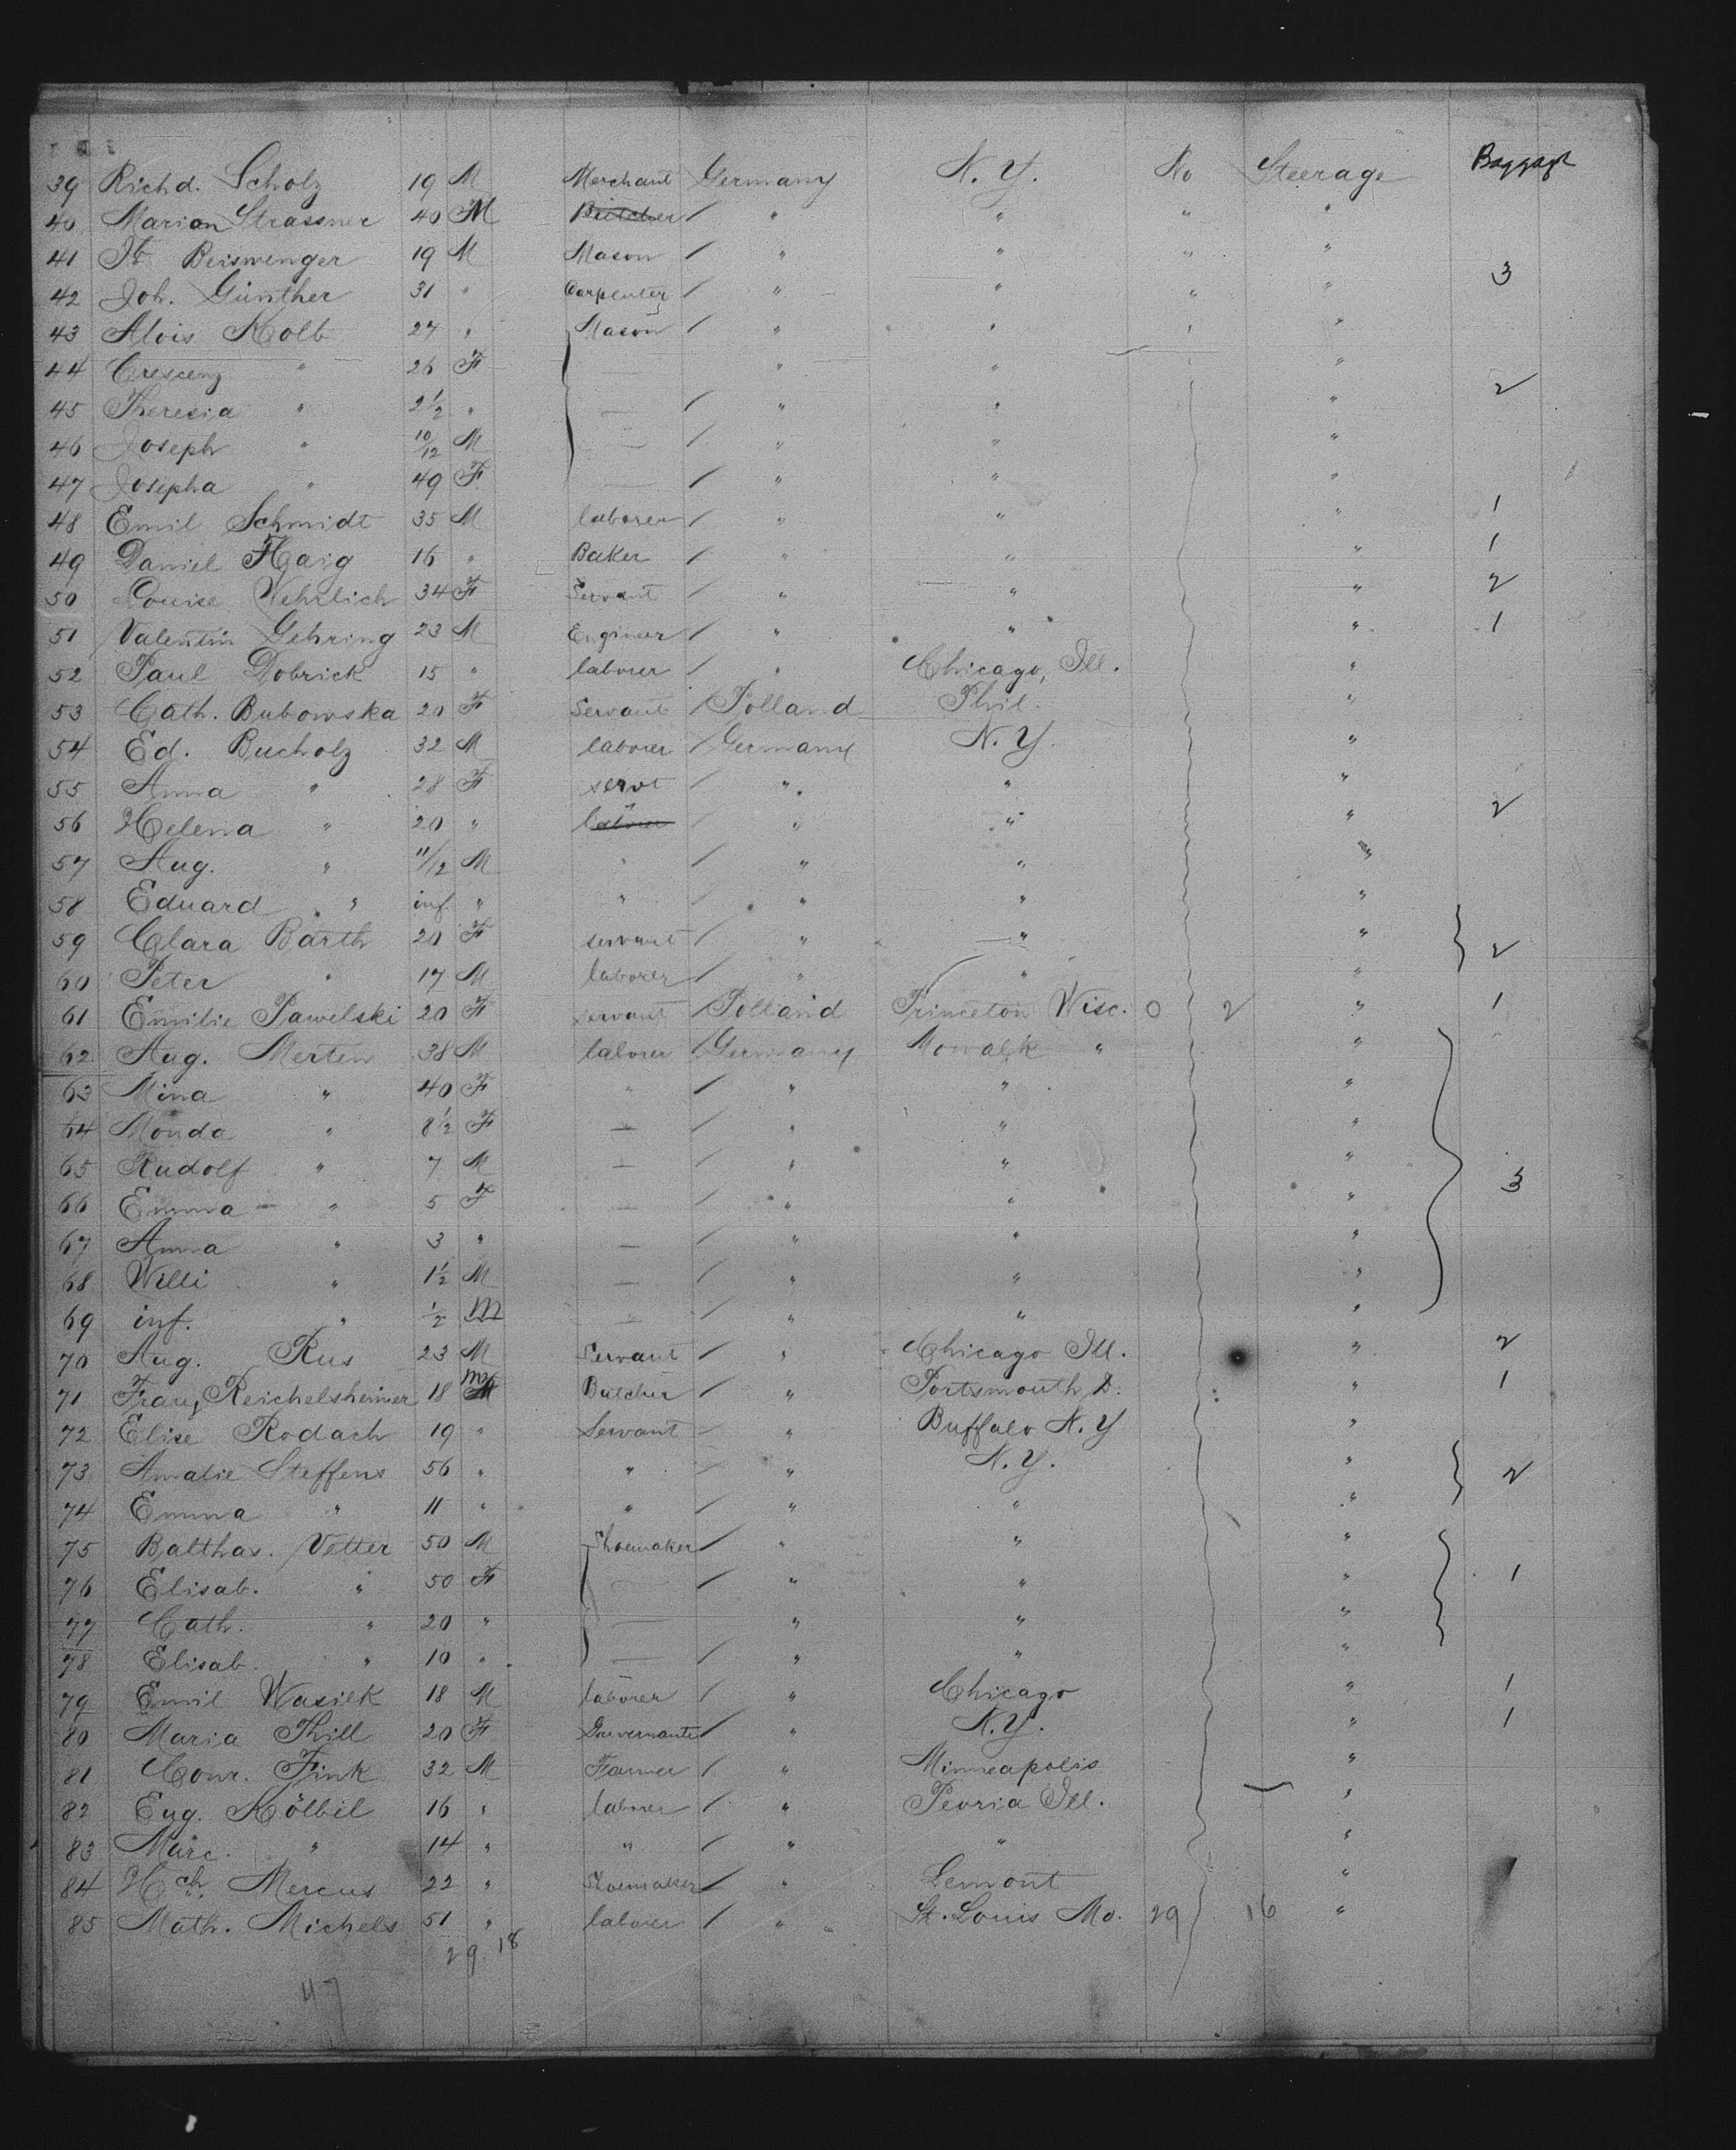 39 Richd. Scholz 19 M Merchant Germany N. Y. No Steerage Baggage
40 Marian Strassner 40 M Butcher / " " " "
41 Beiswenger 19 M Mason / " " " "
42 Joh. Günther 31 " Carpenter / " " " " 3
43 Alois Kolb 27 " Mason / " " " "
44 Crescenz " 26 F — " " "
45 Theresia " 2 1/2 " — / " " " 2
46 Joseph " 10/12 M — / " " "
47 Josepha " 49 F. — / " " "
48 Emil Schmidt 35 M laborer / " " " 1
49 Daniel Haig 16 " Baker / " " " 1
50 Louise Wehrlich 34 F Servant / " " " 2
51 Valentin Gehring 23 M Engineer / " " " 1
52 Paul Dobrick 15 " laborer / " Chicago, Ill. "
53 Cath. Bubowska 20 F Servant / Polland Phil. "
54 Ed. Bucholz 32 M laborer / Germany N. Y. "
55 Anna " 28 F servt / " " "
56 Helena " 20 " labour / " " " 2
57 Aug. " 11/12 M " / " " "
58 Eduard " inf. " " / " " "
59 Clara Barth 20 F servant / " " "
60 Peter " 17 M laborer / " " " 2
61 Emilie Pawelski 20 F servant / Polland Princeton Wisc. 0 2 " 1
62 Aug. Merten 38 M laborer / Germany Mowalk " "
63 Mina " 40 F " / " " "
64 Monda " 8 1/2 F — / " " "
65 Rudolf " 7 M — / " " "
66 Emma " 5 F — / " " " 3
67 Anna " 3 " — / " " "
68 Willi " 1 1/2 M — / " " "
69 inf. " 1/2 M — / " " "
70 Aug. Rus 23 M Servant / " Chicago Ill. " 2
71 Franz Reichelsheimer 18 M Butcher / " Portsmouth " 1
72 Elise Rodach 19 " Servant / " Buffalo N. Y "
73 Amalie Steffens 56 " " / " N. Y. " 2
74 Emma " 11 " " / " " "
75 Balthas. Vetter 50 M Shoemaker / " " "
76 Elisab. " 50 F — / " " " 1
77 Cath. " 20 " — " " "
78 Elisab. " 10 " — / " " "
79 Emil Wasilk 18 M laborer / " Chicago " 1
80 Maria Thill 20 F Gouvernante / " N. Y. " 1
81 Conr. Fink 32 M Farmer / " Minneapolis "
82 Eug. Kölbil 16 " laborer / " Peoria Ill. "
83 Marc. " 14 " " / " " "
84 Hch. Mercus 22 " Shoemaker / " Lemont "
85 Math. Michels 51 " laborer / " St. Louis Mo. 29 16 "
29 18
47